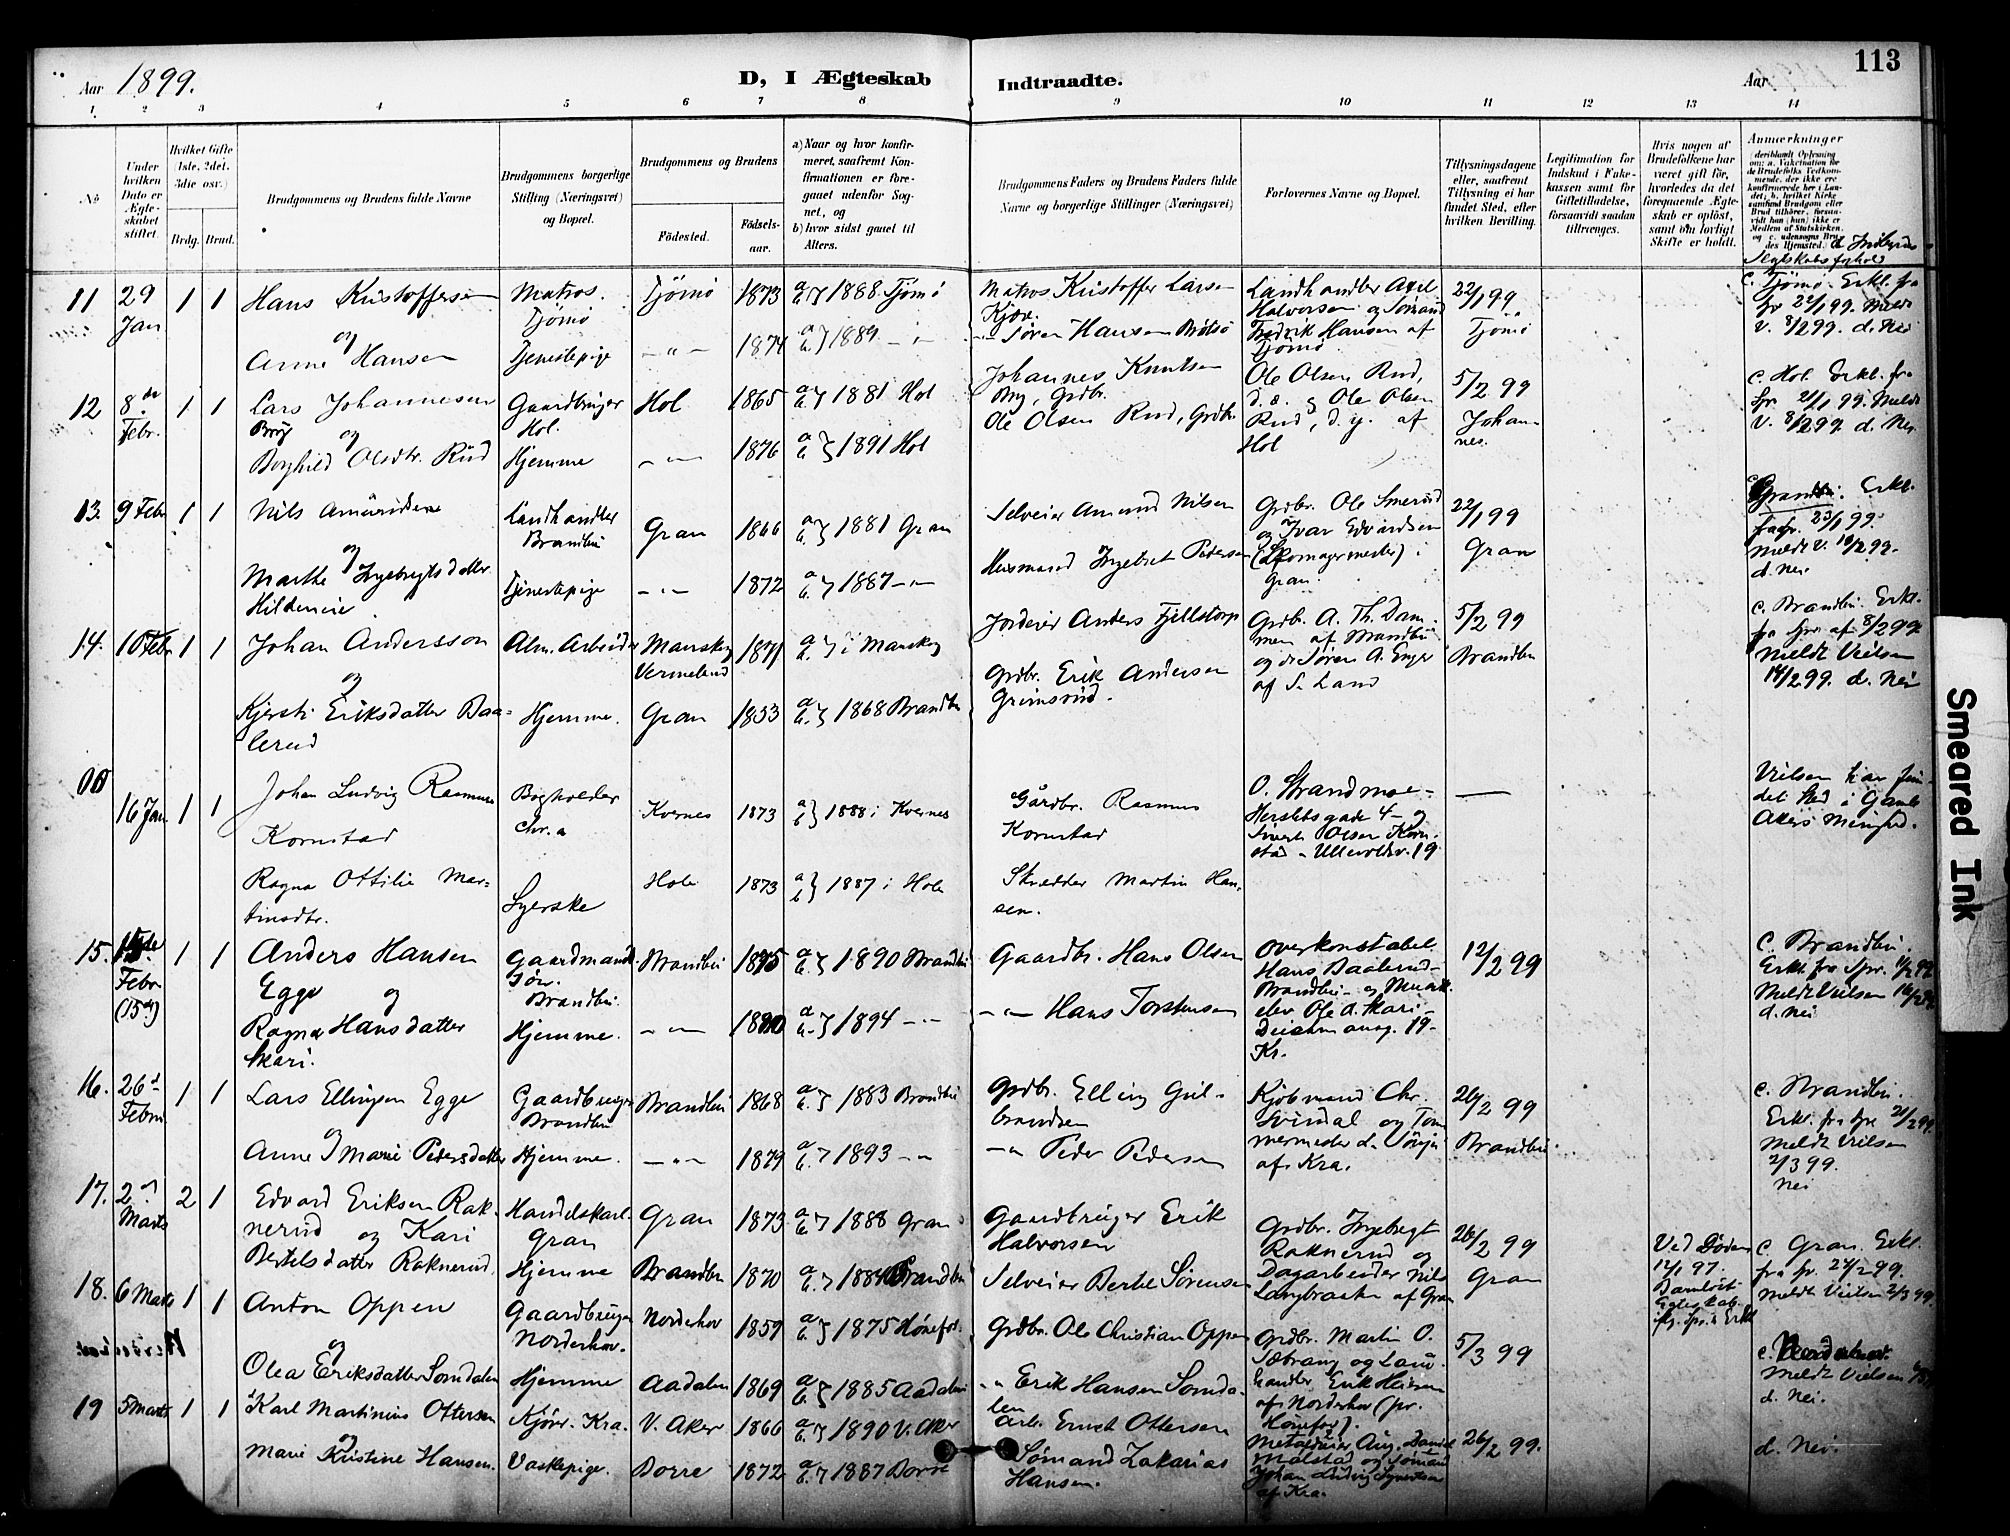 113
Aar 1899.
D, I Ægteskab Indtraadte.
Aar
1. 2 3 4 5 6 7 8 9 10 11 12 13 14
No
Under hvilken Dato er Ægteskabet stiftet.
Hvilket Gifte (1ste, 2det, 3die osv.)
Brdg. Brud.
Brudgommens og Brudens fulde Navne
Brudgommens borgerlige Stilling (Næringsvei) og Bopæl.
Brudgommens og Brudens
Fødested.
Fødsels-aar.
a) Naar og hvor konfirmeret, saafremt Konfirmationen er foregaaet udenfor Sognet, og
b) hvor sidst gaaet til Alters.
Brudgommens Faders og Brudens Faders fulde Navne og borgerlige Stillinger (Næringsvei)
Forlovernes Navne og Bopæl.
Tillysningsdagene eller, saafremt Tillysning ei har fundet Sted, efter hvilken Bevilling.
Legitimation for Indskud i Enkekassen samt for Giftetilladelse, forsaavidt saadan tiltrænges.
Hvis nogen af Brudefolkene har været gift før, hvorledes da det foregaaende Ægteskab er opløst, samt om lovligt Skifte er holdt.
Anmærkninger
11 29 Jan 1 1 Hans Kristoffersen Matros. Tjömö Tjömö 1873 a b } 1888 Tjömö Matros Kristoffer Larsen Kjær. Landhandler Axel Halvorsen og Sömand Fredrik Hansen af Tjömö 22/1 99 Tjömö c. Tjömö Erkl. fra Spr 22/1 99. Meldt V. 8/2 99. d. Nei
og
Anne Hansen Tjenestepige - " - 1874 a b } 1889 - " - Sören Hansen Brötsö
12 8de Febr. 1 1 Lars Johannesen Bröy Gaardbruger Hol. Hol 1865 a b } 1881 Hol Johannes Knutsen Bry, Grdbr. Ole Olsen Rud, d. e. og Ole Olsen Rud, d. y. af Hol 5/2 99 Johannes. c. Hol Erkl. fra Spr. 21/1 99. Meldt V. 8/2 99. d. Nei.
og
Borghild Olsdtr. Rud Hjemme - " - 1876 a b } 1891 Hol Ole Olsen Rud, Grdbr.
13. 9 Febr 1 1 Nils Amundsen Landhandler Brandbu Gran 1866 a b } 1881 Gran Selveier Amund Nilsen Grdbr. Ole Smerud og Ivar Edvardsen (Skomagermester) i Gran. 22/1 99 Gran Erkl. fra Spr. 23/1 99. Meldt V. 10/2 99. d. Nei
og
Marthe Ingebrigtsdatter Hildeneie Tjenestepige - " - 1872 a b } 1887 - " - Husmand Ingebret Pedersen
14. 10 Febr 1 1 Johan Andersson Alm. Arbeider Manskog Vermeland 1871 a b } i Manskog Jordeier Anders Fjellstorp Grdbr. A. Th. Dammen af Brandbu og do Sören A. Enger af S. Land 5/2 99 Brandbu c. Brandbu. Erkl. fra Spr af 8/2 99 Meldt Vielsen 14/2 99. d. Nei
og
Kjersti Eriksdatter Baalerud Hjemme. Gran 1853 a b } 1868 Brandbu Grdbr. Erik Andersen Grimsrud.
00 16 Jan. 1 1 Johan Ludvig Rasmussen Kornstad Bogholder Chr.a Kvernes 1873 a b } 1888 i Kvernes Gårdbr. Rasmus Kornstad O. Strandmoe - Herslebsgade 4 - og Sivert Olsen Kornstad - Ullevoldsv. 19 — Vielsen har fundet Sted i Gamle Akers Menighed.
Ragna Ottilie Martinsdtr. Syerske Hole 1873 a b } 1887 i Hole Skrædder Martin Hansen.
15. Febr (15de) 1 1 Anders Hansen Egge Gaardmands Sön. Brandbu. Brandbu 1875 a b } 1890 Brandbu Gaardbr. Hans Olsen Overkonstabel Hans Baalerud - Brandbu - og Musikelev Ole A. Skari - Deichmansg. 19 - Kr. 12/2 99 c. Brandbu. Erkl. fra Spr. 11/2 99 Meldt Vielsen 16/2 99 d. Nei
og
Ragna Hansdatter Skari. Hjemme. - " - 1880 a b } 1894 - " - - " - Hans Torstensen
16. 26d Febru 1 1 Lars Ellingsen Egge Gaardbruger Brandbu Brandbu 1868 a b } 1883 Brandbu Grdbr. Elling Gulbrandsen Kjöbmand Chr. Svindal og Tömmermester L. af Kra. 26/2 99 Brandbu c. Brandbu. Erkl. fra Spr 21/2 99. Meldt Vielsen 2/3 99. Nei
og
Anne Marie Pedersdatter Hjemme. - " - 1879 a b } 1893 - " - - " - Peder Pedersen
17. 2 Marts 2 1 Edvard Eriksen Raknerud og Kari Handelskarl. Gran Gran 1873 a b } 1888 Gran Gaardbruger Erik Halvorsen Grdbr. Ingebregt Raknerud og Dagarbeider Nils Langbraaten af Gran 26/2 99 Gran Ved Döden 12/1 97. Barnlöst Egteskab. c. Gran. Erkl. fra Spr. 24/2 99. Meldt Vielsen 2/3 99.
Bertelsdatter Raknerud. Hjemme Brandbu 1870 a b } 1884 Brandbu Selveier Bertel Sörensen
18. 6 Marts 1 1 Anton Oppen Gaardbruger Norderhov. Norderhov 1859 a b } 1875 Hönefos. Grdbr. Ole Christian Oppen Grdbr. Martin O. Sætrang og Landhandler Erik Heiersen af Norderhov (pr. Hönefos). 5/3 99 c. Norderhov. Meldt Vielsen d. Nei.
og
Olea Eriksdatter Somdalen Hjemme Aadalen 1869 a b } 1885 Aadalen - " - Erik Hansen Somdalen
19 5 Marts 1 1 Karl Martinius Ottersen Kjörer. Kra. V. Aker 1866 a b } 1890 V. Aker Arb. Ernst Ottersen Aug. Daniel Malstad og Sömand Johan Ludvig Syvertsen af Kra. 26/2 99. d. Nei.
og
Marie Kristine Hansen. Vaskepige. Borre 1872 a b } 1887 Borre Sömand Zakarias Hansen.
Smeared Ink